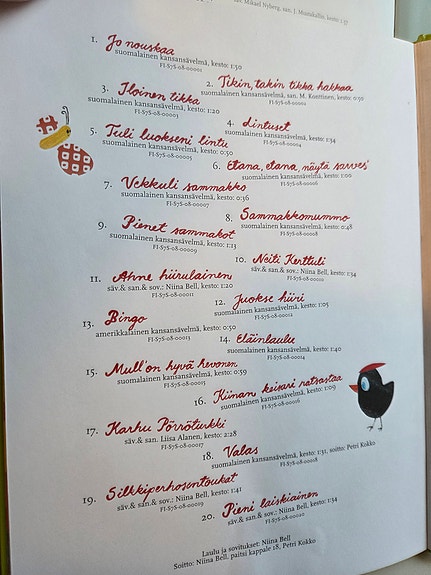 Mikael Nyberg, san. I. Mustakallio, kesto: 1:37
1. Jo nouskaa
suomalainen kansansävelmä, kesto: 1:50
FI-S7S-08-00001
2. Tikin, takin tikka hakkaa
suomalainen kansansävelmä, san. M. Konttinen, kesto: 0:50
FI-S7S-08-00002
3. Iloinen tikka
suomalainen kansansävelmä, kesto: 1:20
FI-S7S-08-00003
4. Lintuset
suomalainen kansansävelmä, kesto: 1:34
FI-S7S-08-00004
5. Tuli luokseni lintu
suomalainen kansansävelmä, kesto: 0:50
FI-S7S-08-00005
6. Etana, etana, näytä sarves'
suomalainen kansansävelmä, kesto: 1:00
FI-S7S-08-00006
7. Vekkuli sammakko
suomalainen kansansävelmä, kesto: 0:36
FI-S7S-08-00007
8. Sammakkomummo
suomalainen kansansävelmä, kesto: 0:48
FI-S7S-08-00008
9. Pienet sammakot
suomalainen kansansävelmä, kesto: 1:13
FI-S7S-08-00009
10. Neiti Kerttuli
säv.& san.& sov.: Niina Bell, kesto: 1:34
FI-S7S-08-00010
11. Ahne hiirulainen
säv.& san.& sov.: Niina Bell, kesto: 1:20
FI-S7S-08-00011
12. Juokse hiiri
suomalainen kansansävelmä, kesto: 1:05
FI-S7S-08-00012
13. Bingo
amerikkalainen kansansävelmä, kesto: 0:50
FI-S7S-08-00013
14. Eläinlaulu
suomalainen kansansävelmä, kesto: 1:40
FI-S7S-08-00014
15. Mull'on hyvä hevonen
suomalainen kansansävelmä, kesto: 0:59
FI-S7S-08-00015
16. Kiinan keisari ratsastaa
suomalainen kansansävelmä, kesto: 1:09
FI-S7S-08-00016
17. Karhu Pörröturkki
säv.& san. Liisa Alanen, kesto: 2:28
FI-S7S-08-00017
18. Valas
suomalainen kansansävelmä, kesto: 1:31, soitto: Petri Kokko
FI-S7S-08-00018
19. Silkkiperhosentoukat
säv.& san.& sov.: Niina Bell, kesto: 1:41
FI-S7S-08-00019
20. Pieni laiskiainen
säv.& san.& sov.: Niina Bell, kesto: 1:34
FI-S7S-08-00020
Laulu ja sovitukset: Niina Bell
Soitto: Niina Bell, paitsi kappale 18, Petri Kokko